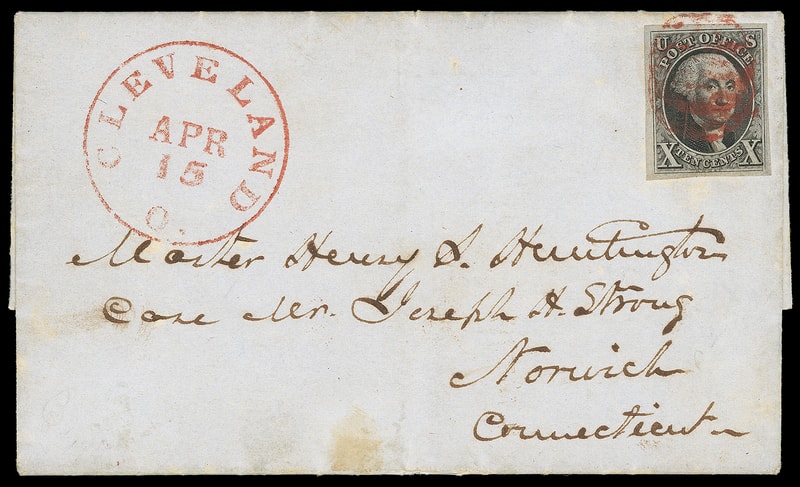 CLEVELAND O.
APR
15
U S
POST OFFICE
X TEN CENTS X
Master Henry S. Huntington
Care Mr. Joseph H. Strong
Norwich
Connecticut